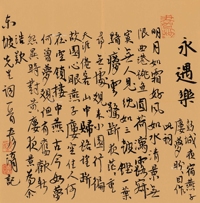 永遇樂
彭城夜宿燕子
樓夢盼盼因作
此詞
明月如霜好風如水清景無
限曲港跳魚圓荷瀉露寂
寞無人見紞如三鼓鏗然一葉
黯黯夢雲驚斷夜茫茫
重尋無處覺來小園行遍
天涯倦客山中歸路望斷
故園心眼燕子樓空佳人何
在空鎖樓中燕古今如夢
何曾夢覺但有舊歡新怨
異時對黃樓夜景為余
浩歎
東坡先生詞一首